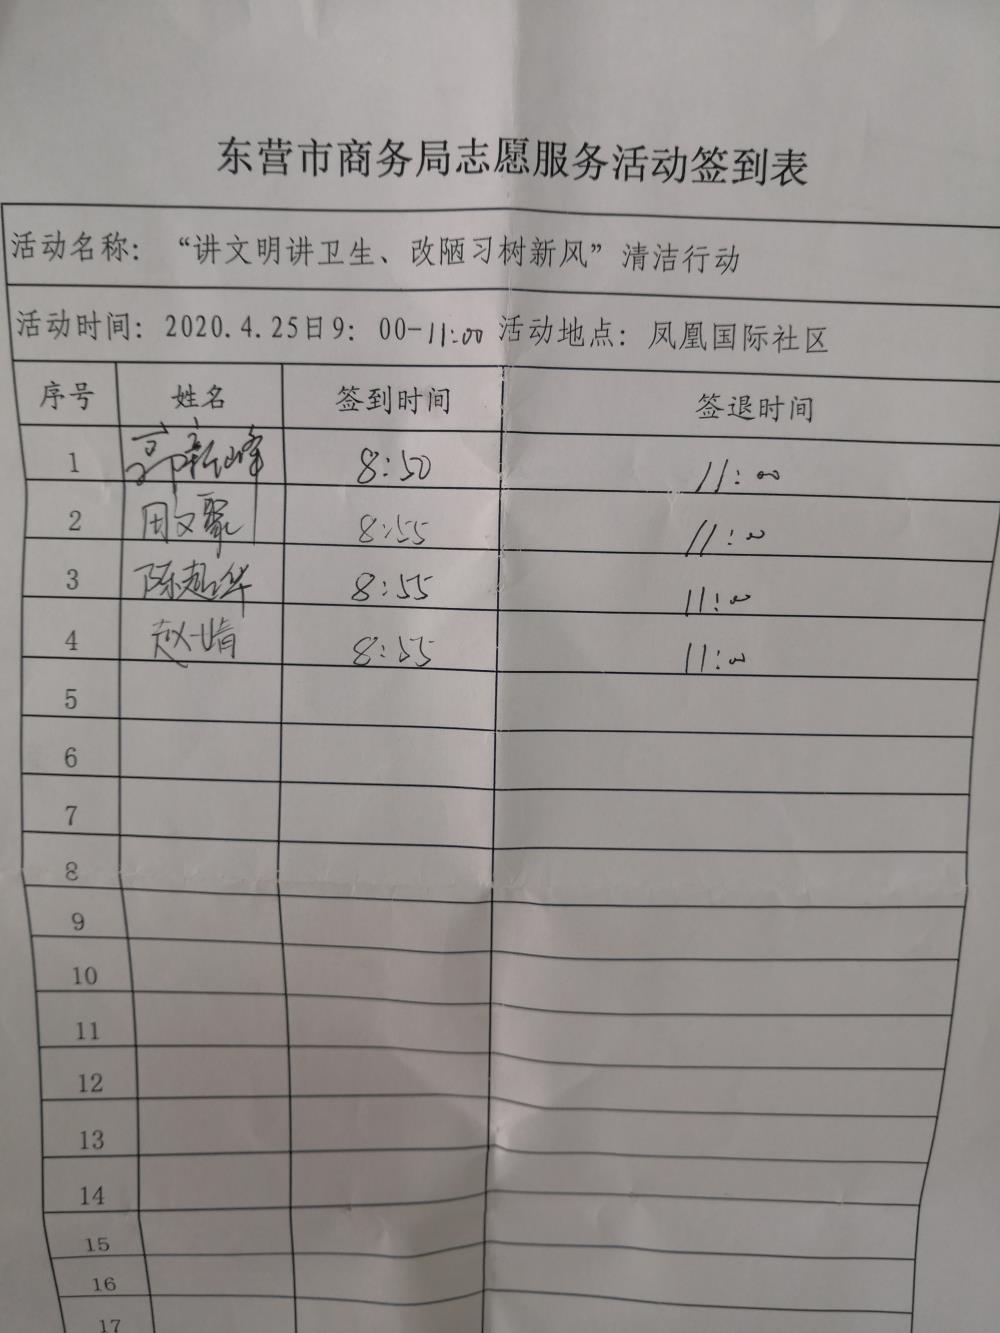 东营市商务局志愿服务活动签到表
活动名称：“讲文明讲卫生、改陋习树新风”清洁行动
活动时间：2020.4.25日9：00-11:00 活动地点：凤凰国际社区
序号 姓名 签到时间 签退时间
1 郭新峰 8:50 11:00
2 周文聚 8:55 11:00
3 陈超华 8:55 11:00
4 赵婧 8:55 11:00
5
6
7
8
9
10
11
12
13
14
15
16
17